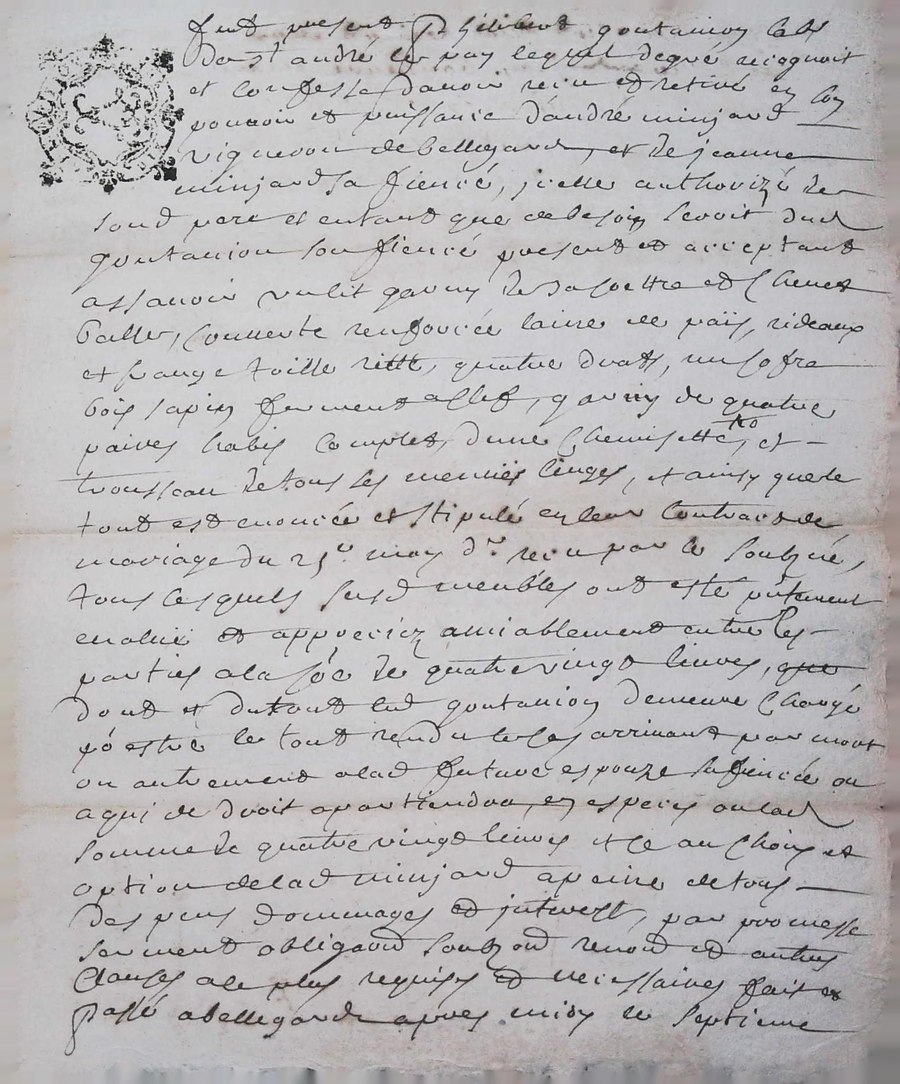 fut present Philibert goutanion lab
De st andré le puy lequel degré recognoit
et Confesse davoir receu et retiré en son
pouvoir et puissance dandré minjard
vigneron de bellegarde, et de jeanne
minjard sa fiencé, jcelle authorizé de
soud pere et entant que de besoin seroit dud
goutanion son fiencé present et acceptant
assavoir un lit garny de sa coettre et Chevet
balle, Couverte renforcée laine de païs, rideaux
et frange toille, quatre draps, un cofre
bois sapin fermant a clef, garny de quatre
paires habis Complet, dune Chemisette, et
trousseau de tous ses menües linges, et ainsy que le
tout est enoncée et stipulé en leur Contract de
mariage du 25e may dr receu par le soubzné,
tous lesquels susd meubles ont esté
evalué et appreciez amiablement entre les
parties a la sôe de quatre vingt livres, que
dont et du tout led goutanion demeure Chargé
po estre le tout rendu le cas arrivant par mort
ou autrement a lad future espouze sa fiencée ou
a qui de droit apartiendra, en especes ou lad
somme de quatre vingt livres et ce au Choix et
option de lad minjard a peine de tous
despens dommages et jnterest, par promesse
serment obligaond soubzond renond et autres
Clauses a le plus requises et necessaires fait et
Passé a bellegarde apres midy le septieme